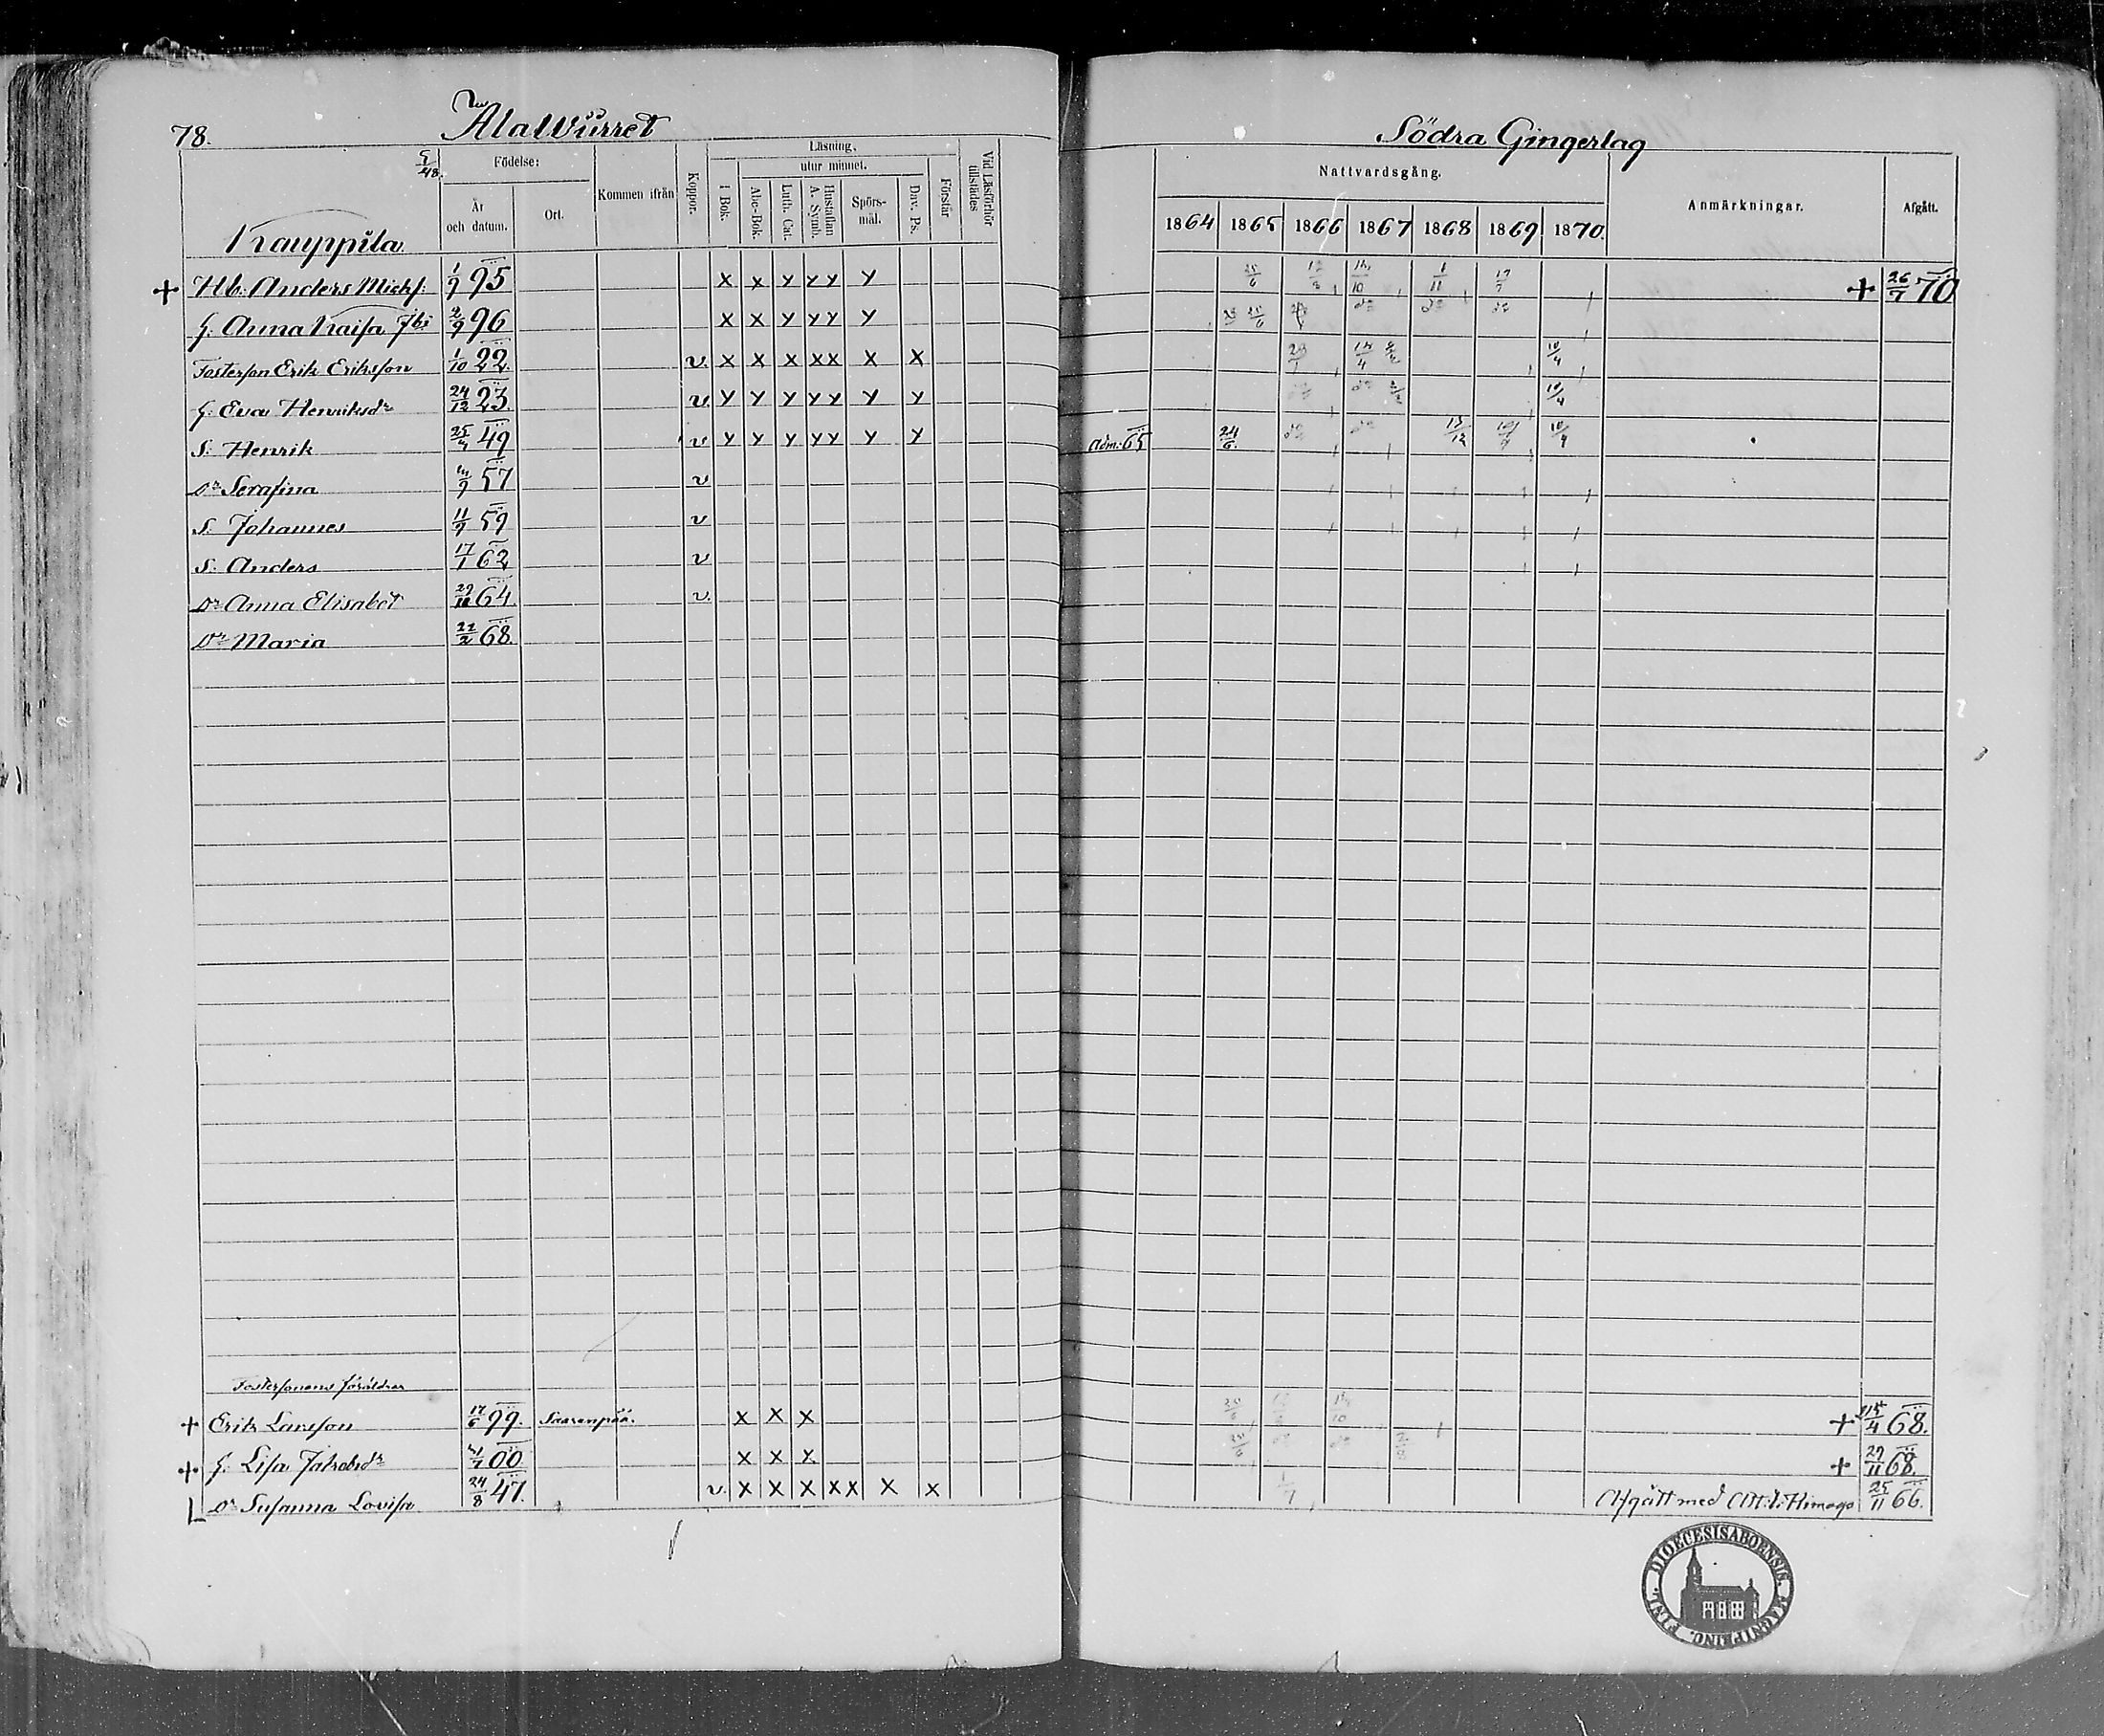 78. Alawürret
Södra Gingerlag
5/48.
Födelse:
År och datum.
Ort.
Kommen ifrån
Koppor.
Läsning.
utur minnet.
I Bok.
Abc-Bok.
Luth. Cat.
Hustaflan A. Symb.
Spörsmål.
Dav. Ps.
Förstår
Vid Läsförhör tillstädes
Nattvardsgång.
1864 1865 1866 1867 1868 1869 1870.
Anmärkningar.
Afgått.
Kauppila.
+ Hb. Anders Michs: 1/9 95 x x y y y y + 26/7 70
h. Anna Kaisa 2/9 96 x x y y y y
Fosterson Erik Eriksson 1/10 22. v. x x x x x x x 10/4
h. Eva Henriksdr 24/12 23. v y y y y y y y 10/4
S. Henrik 25/4 49 v y y y y y y y Adm: 65 24/6. 13/12 10/4
Dr Serafina 57 v
S. Johannes 11/9 59 v
S. Anders 17/1 62 v
Dr Anna Elisabet 64 v.
Dr Maria 22/2 68.
Fostersonens föräldrar
+ Erik Larsson 17/6 99. Saarenpää. x x x + 15/4 68.
+ h. Lisa Jakobsdr 00 x x x + 29/11 68.
Dr Susanna Lovisa 24/8 47. v. x x x x x x x 1/7 Afgått med Att. t. Himago 25/11 66.
DIOECESIS ABOENSIS. MAGNI PRINC. FINL.